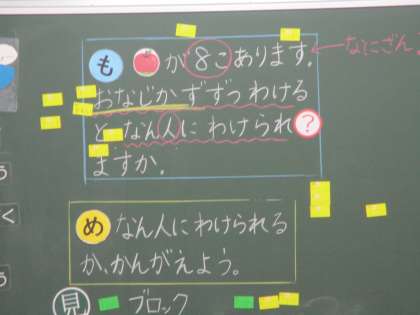 も が8こあります。
おなじかずずつわける
と、なん人にわけられ?
ますか。
め なん人にわけられる
か、かんがえよう。
見 ブロック